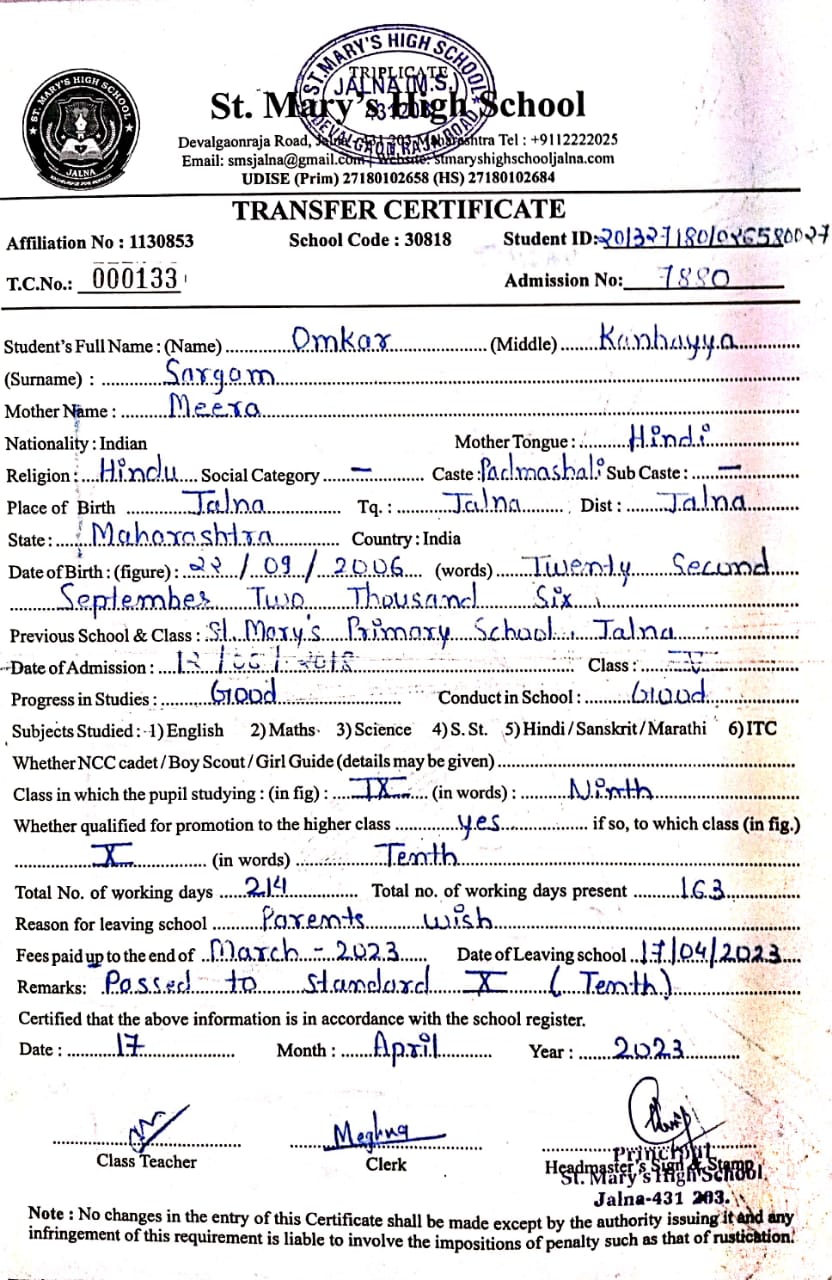 ST. MARY'S HIGH SCHOOL
JALNA (M.S.)
TRIPLICATE
DEVALGAON RAJA ROAD
ST. MARY'S HIGH SCHOOL
JALNA
St. Mary's High School
Devalgaonraja Road, Jalna - 431 203 Maharashtra Tel : +9112222025
Email: smsjalna@gmail.com | Website: stmaryshighschooljalna.com
UDISE (Prim) 27180102658 (HS) 27180102684
TRANSFER CERTIFICATE
Affiliation No : 1130853 School Code : 30818 Student ID:
T.C.No.: 000133 Admission No: 7880
Student's Full Name : (Name) Omkar (Middle) Kanhayya
(Surname) : Sargam
Mother Name : Meera
Nationality : Indian Mother Tongue : Hindi
Religion : Hindu Social Category – Caste : Padmashali Sub Caste : –
Place of Birth Jalna Tq. : Jalna Dist : Jalna
State : Maharashtra Country : India
Date of Birth : (figure) : 22 / 09 / 2006 (words) Twenty Second
September Two Thousand Six
Previous School & Class : St. Mary's Primary School, Jalna
Date of Admission : Class : V
Progress in Studies : Good Conduct in School : Good
Subjects Studied : 1) English 2) Maths 3) Science 4) S. St. 5) Hindi / Sanskrit / Marathi 6) ITC
Whether NCC cadet / Boy Scout / Girl Guide (details may be given)
Class in which the pupil studying : (in fig) : IX (in words) : Ninth
Whether qualified for promotion to the higher class yes if so, to which class (in fig.)
X (in words) Tenth
Total No. of working days 214 Total no. of working days present 163
Reason for leaving school Parents wish
Fees paid up to the end of March - 2023 Date of Leaving school 17/04/2023
Remarks: Passed to standard X (Tenth)
Certified that the above information is in accordance with the school register.
Date : 17 Month : April Year : 2023
Meghna
Class Teacher Clerk Principal
Headmaster's Sign & Stamp
St. Mary's High School
Jalna-431 203.
Note : No changes in the entry of this Certificate shall be made except by the authority issuing it and any
infringement of this requirement is liable to involve the impositions of penalty such as that of rustication.